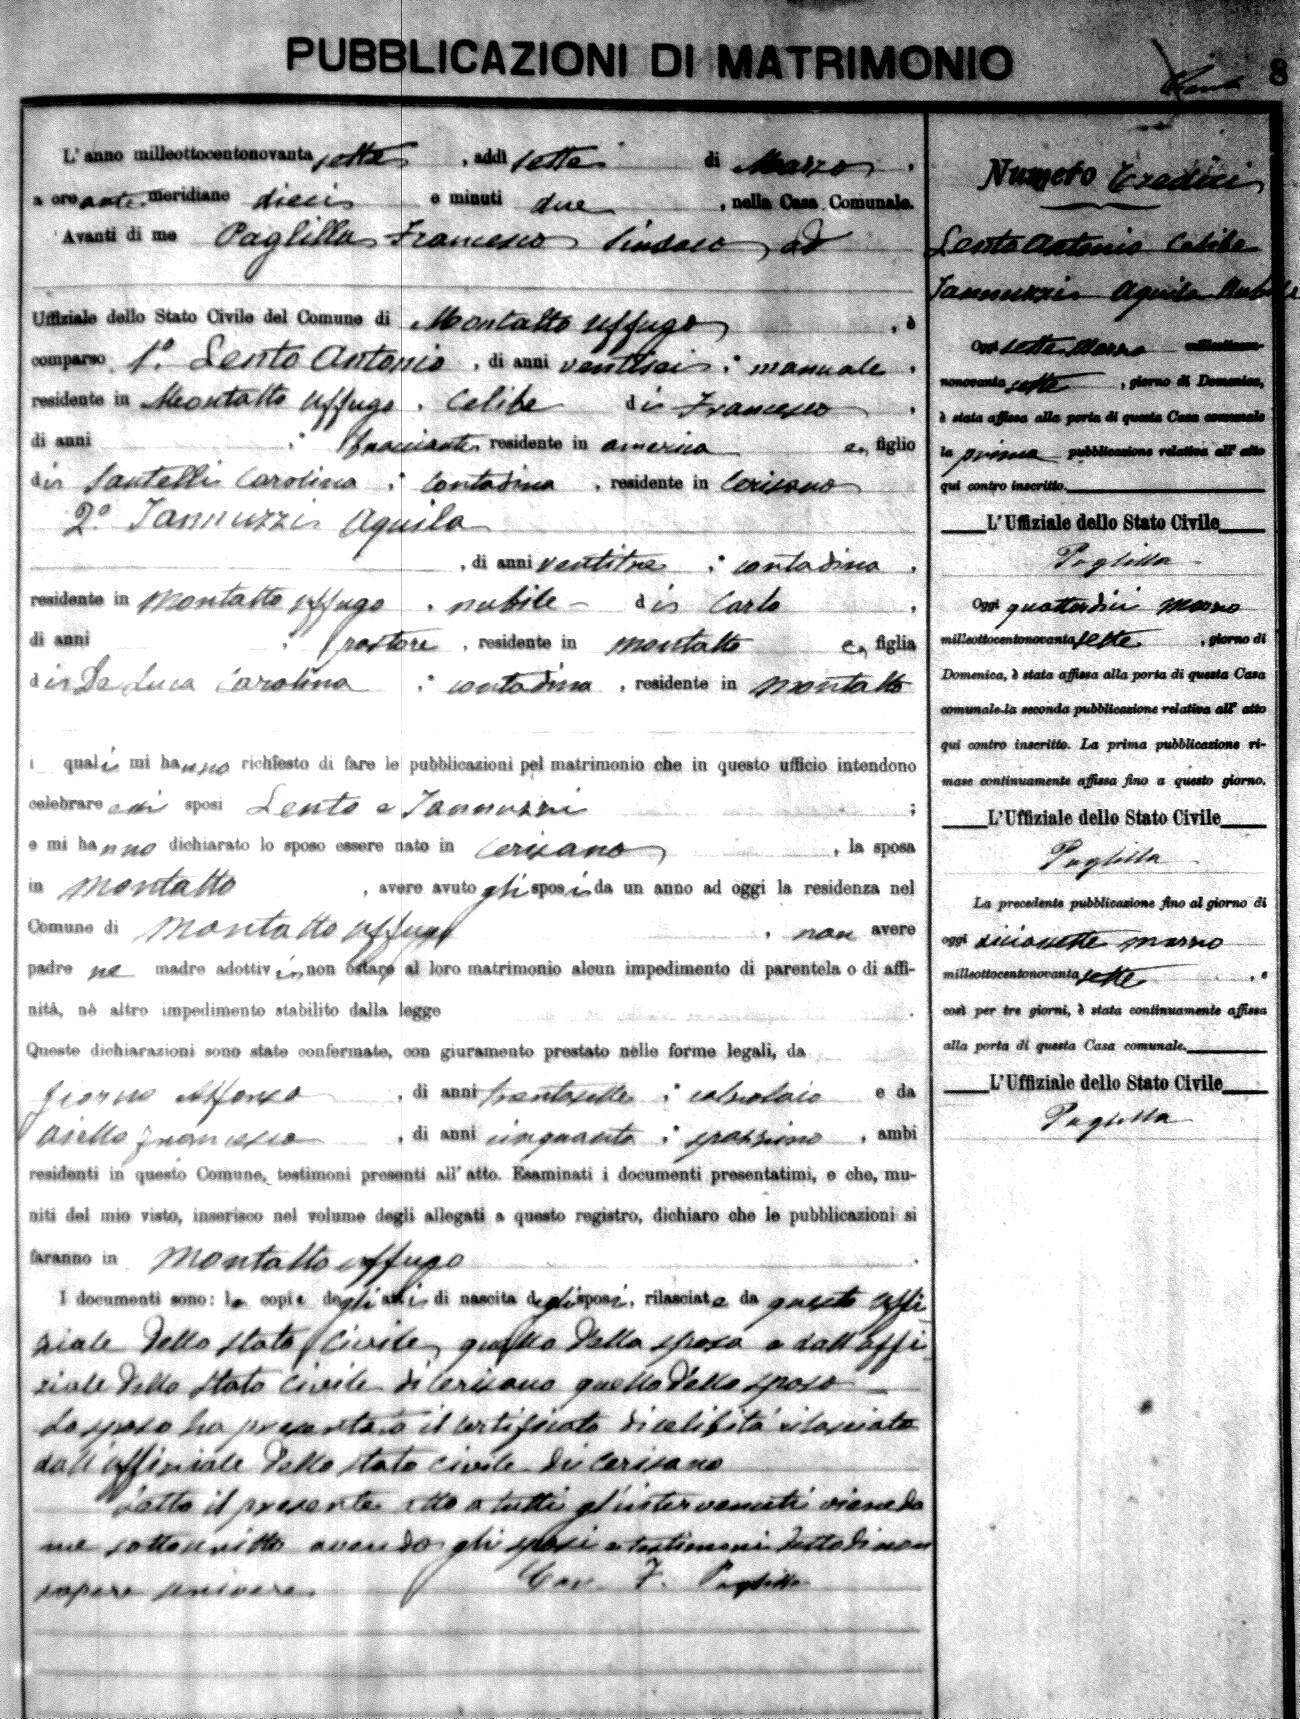 PUBBLICAZIONI DI MATRIMONIO
8
L'anno milleottocentonovanta sette, addì sette di Marzo,
a ore anti meridiane dieci e minuti due, nella Casa Comunale.
Avanti di me Paglilla Francesco Sindaco ed
Uffiziale dello Stato Civile del Comune di Montalto Uffugo, è
comparso 1.º Lento Antonio, di anni ventisei; manuale,
residente in Montalto Uffugo, Celibe di Francesco,
di anni ; bracciante, residente in america e, figlio
di Santelli Carolina; contadina, residente in Cerisano
2.º Iannuzzi Aquila
, di anni ventitre; contadina,
residente in Montalto Uffugo, nubile - di Carlo,
di anni ; pastore, residente in Montalto e, figlia
di De Luca Carolina; contadina, residente in Montalto
i quali mi hanno richiesto di fare le pubblicazioni pel matrimonio che in questo ufficio intendono
celebrare essi sposi Lento e Iannuzzi;
e mi hanno dichiarato lo sposo essere nato in Cerisano, la sposa
in Montalto, avere avuto gli sposi da un anno ad oggi la residenza nel
Comune di Montalto Uffugo, non avere
padre ne madre adottivi non ostare al loro matrimonio alcun impedimento di parentela o di affi-
nità, nè altro impedimento stabilito dalla legge.
Queste dichiarazioni sono state confermate, con giuramento prestato nelle forme legali, da
Giorno Alfonso, di anni trentasette; calzolaio e da
Aiello Francesco, di anni cinquanta; spazzino, ambi
residenti in questo Comune, testimoni presenti all'atto. Esaminati i documenti presentatimi, e che, mu-
niti del mio visto, inserisco nel volume degli allegati a questo registro, dichiaro che le pubblicazioni si
faranno in Montalto Uffugo.
I documenti sono: le copie degli atti di nascita degli sposi, rilasciate da questo Uffi
ziale dello stato Civile, quella della sposa e dall'uffi
ziale dello stato Civile di Cerisano quello dello sposo
Lo sposo ha presentato il certificato di celibità rilasciato
dall'uffiziale dello stato civile di Cerisano
Letto il presente atto a tutti gl'intervenuti viene da
me sottoscritto avendo gli sposi e testimoni detto di non
sapere scrivere Cav. F. Paglilla
Numero tredici
Lento Antonio Celibe
Iannuzzi Aquila Nubile
Oggi sette Marzo milleottocen-
nonovanta sette, giorno di Domenica,
è stata affissa alla porta di questa Casa comunale
la prima pubblicazione relativa all'atto
qui contro inscritto.
L'Uffiziale dello Stato Civile
Paglilla
Oggi quattordici Marzo
milleottocentonovanta sette, giorno di
Domenica, è stata affissa alla porta di questa Casa
comunale la seconda pubblicazione relativa all'atto
qui contro inscritto. La prima pubblicazione ri-
mase continuamente affissa fino a questo giorno.
L'Uffiziale dello Stato Civile
Paglilla
La precedente pubblicazione fino al giorno di
oggi diciasette marzo
milleottocentonovanta sette, e
così per tre giorni, è stata continuamente affissa
alla porta di questa Casa comunale.
L'Uffiziale dello Stato Civile
Paglilla